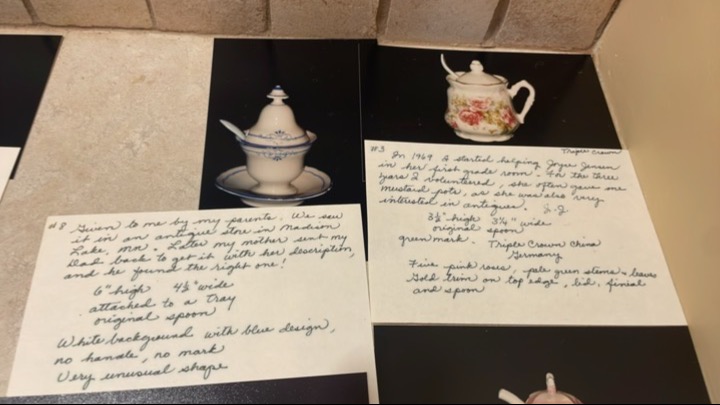 #8 Given to me by my parents. We saw
it in an antique store in Madison
Lake, Mn. Later my mother sent my
Dad back to get it with her description,
and he found the right one!
6" high 4½" wide
attached to a tray
original spoon
White background with blue design,
no handle, no mark
Very unusual shape
Triple Crown
#3 In 1969 I started helping Joyce Jensen
in her first grade room. In the three
years I volunteered, she often gave me
mustard pots, as she was also very
interested in antiques. J.J.
3½" high 3¾" wide
original spoon
green mark. Triple Crown China
Germany
Five pink roses, pale green stems & leaves
Gold trim on top edge, lid, finial
and spoon